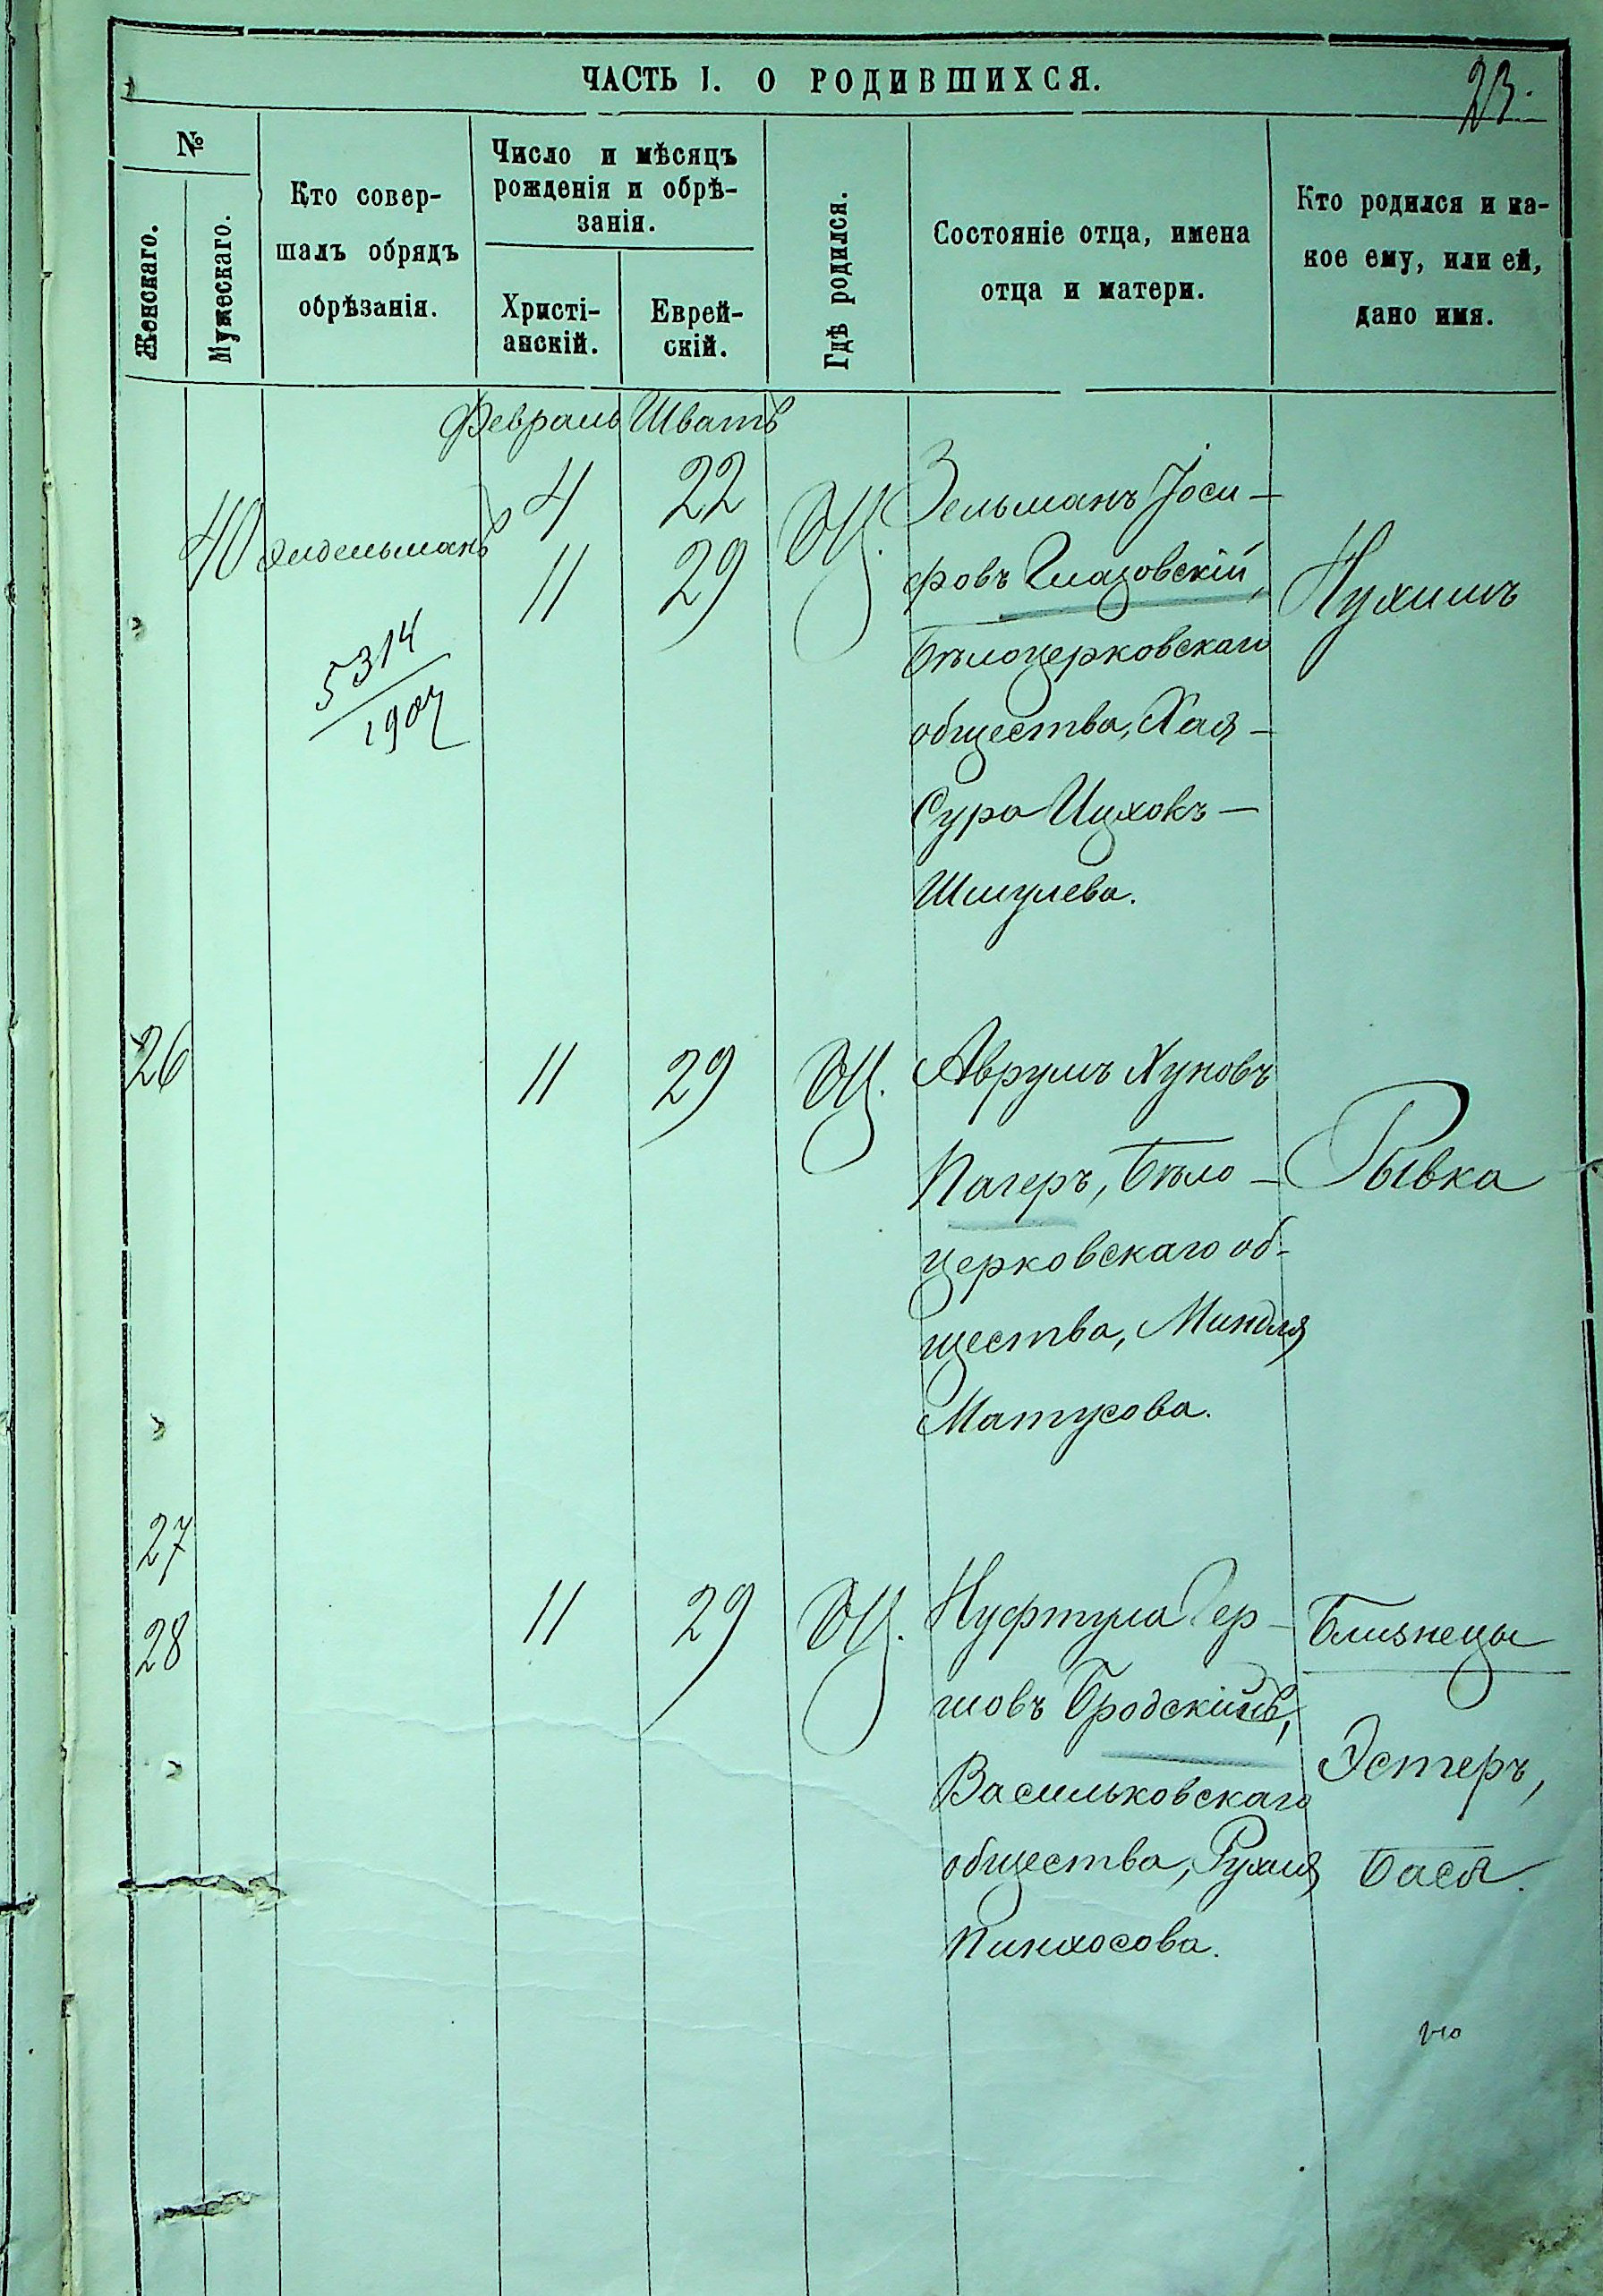 ЧАСТЬ I. О РОДИВШИХСЯ.
23.
№
Женскаго.
Мужескаго.
Кто совер-
шалъ обрядъ
обрѣзанія.
Число и мѣсяцъ
рожденія и обрѣ-
занія.
Христі-
анскій.
Еврей-
скій.
Гдѣ родился.
Состояніе отца, имена
отца и матери.
Кто родился и ка-
кое ему, или ей,
дано имя.
Февраль Шватъ
40
4 22
11 29
БЦ.
Зельманъ Іоси-
фовъ Глазовскій,
Бѣлоцерковскаго
общества, Хая-
Сура Ицхокъ-
Шмулева.
Нухимъ
5314
1907
26 11 29 БЦ.
Аврумъ Хуновъ
Пагеръ, Бѣло-
церковскаго об-
щества, Миндля
Матусова.
Рывка
27
28
11 29 БЦ.
Нуфтула Гер-
шовъ Бродскій,
Васильковскаго
общества, Рухля
Пинхосова.
Близнецы
Эстеръ,
Бася.